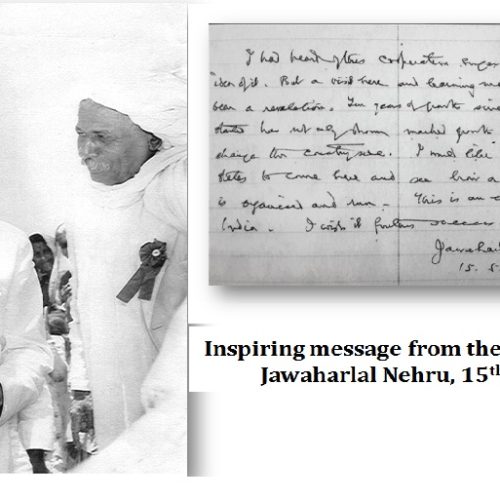 I had heard of this cooperative sugar
idea of it. But a visit here and learning
been a revelation. Ten years of growth since
started has not only shown marked growth
change the countryside. I would like
States to come here and see how a
is organised and run. This is an
India. I wish it further success
Jawahar
15.5
Inspiring message from the
Jawaharlal Nehru, 15th